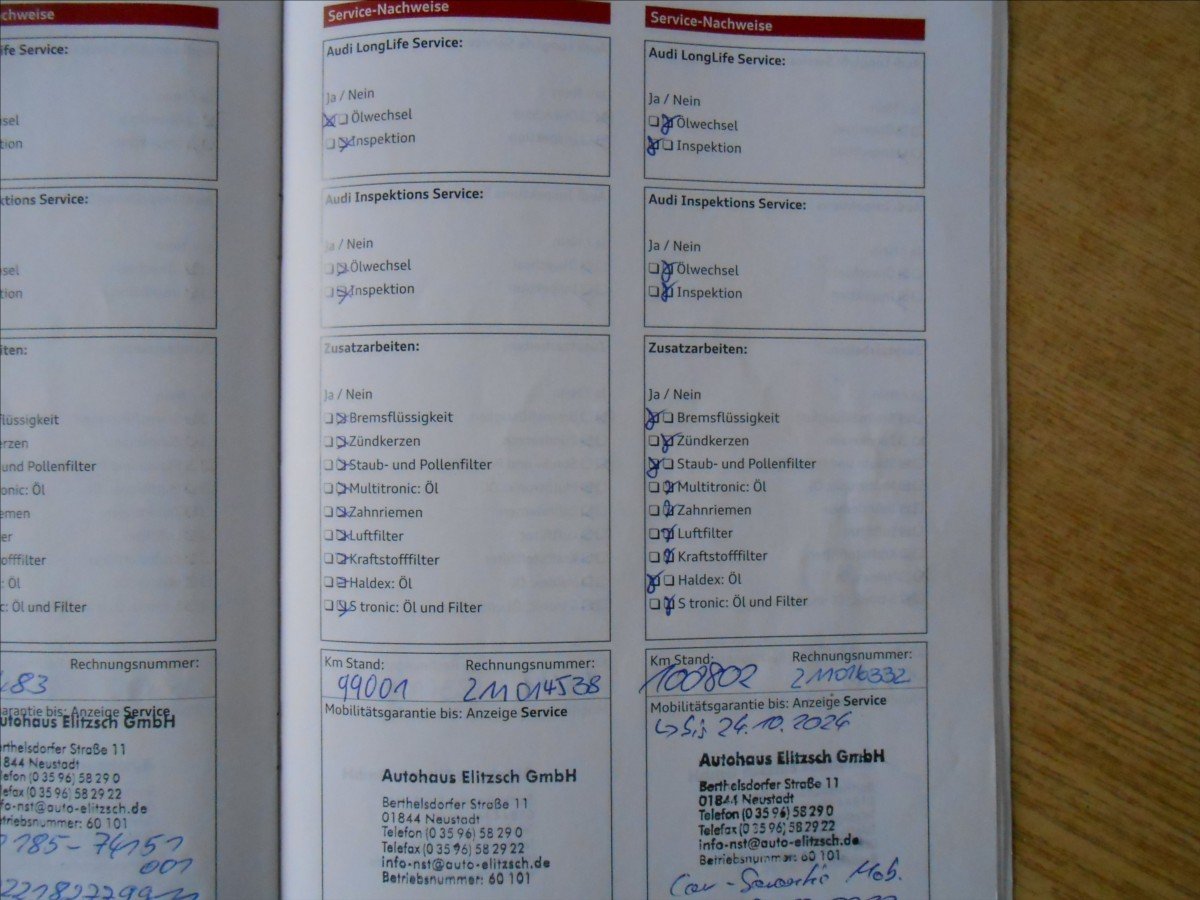 chweise
ife Service:
sel
tion
ktions Service:
sel
tion
iten:
flüssigkeit
erzen
und Pollenfilter
onic: Öl
emen
er
offfilter
: Öl
ic: Öl und Filter
Rechnungsnummer:
483
garantie bis: Anzeige Service
utohaus Elitzsch GmbH
erthelsdorfer Straße 11
1844 Neustadt
elefon (0 35 96) 58 29 0
elefax (0 35 96) 58 29 22
nfo-nst@auto-elitzsch.de
etriebsnummer: 60 101
185-74151
001
Service-Nachweise
Audi LongLife Service:
Ja / Nein
Ölwechsel
Inspektion
Audi Inspektions Service:
Ja / Nein
Ölwechsel
Inspektion
Zusatzarbeiten:
Ja / Nein
Bremsflüssigkeit
Zündkerzen
Staub- und Pollenfilter
Multitronic: Öl
Zahnriemen
Luftfilter
Kraftstofffilter
Haldex: Öl
S tronic: Öl und Filter
Km Stand: Rechnungsnummer:
99001 211014538
Mobilitätsgarantie bis: Anzeige Service
Autohaus Elitzsch GmbH
Berthelsdorfer Straße 11
01844 Neustadt
Telefon (0 35 96) 58 29 0
Telefax (0 35 96) 58 29 22
info-nst@auto-elitzsch.de
Betriebsnummer: 60 101
Service-Nachweise
Audi LongLife Service:
Ja / Nein
Ölwechsel
Inspektion
Audi Inspektions Service:
Ja / Nein
Ölwechsel
Inspektion
Zusatzarbeiten:
Ja / Nein
Bremsflüssigkeit
Zündkerzen
Staub- und Pollenfilter
Multitronic: Öl
Zahnriemen
Luftfilter
Kraftstofffilter
Haldex: Öl
S tronic: Öl und Filter
Km Stand: Rechnungsnummer:
100802 211016332
Mobilitätsgarantie bis: Anzeige Service
↳ bis 24.10.2024
Autohaus Elitzsch GmbH
Berthelsdorfer Straße 11
01844 Neustadt
Telefon (0 35 96) 58 29 0
Telefax (0 35 96) 58 29 22
info-nst@auto-elitzsch.de
Betriebsnummer: 60 101
Car-Garantie Mob.